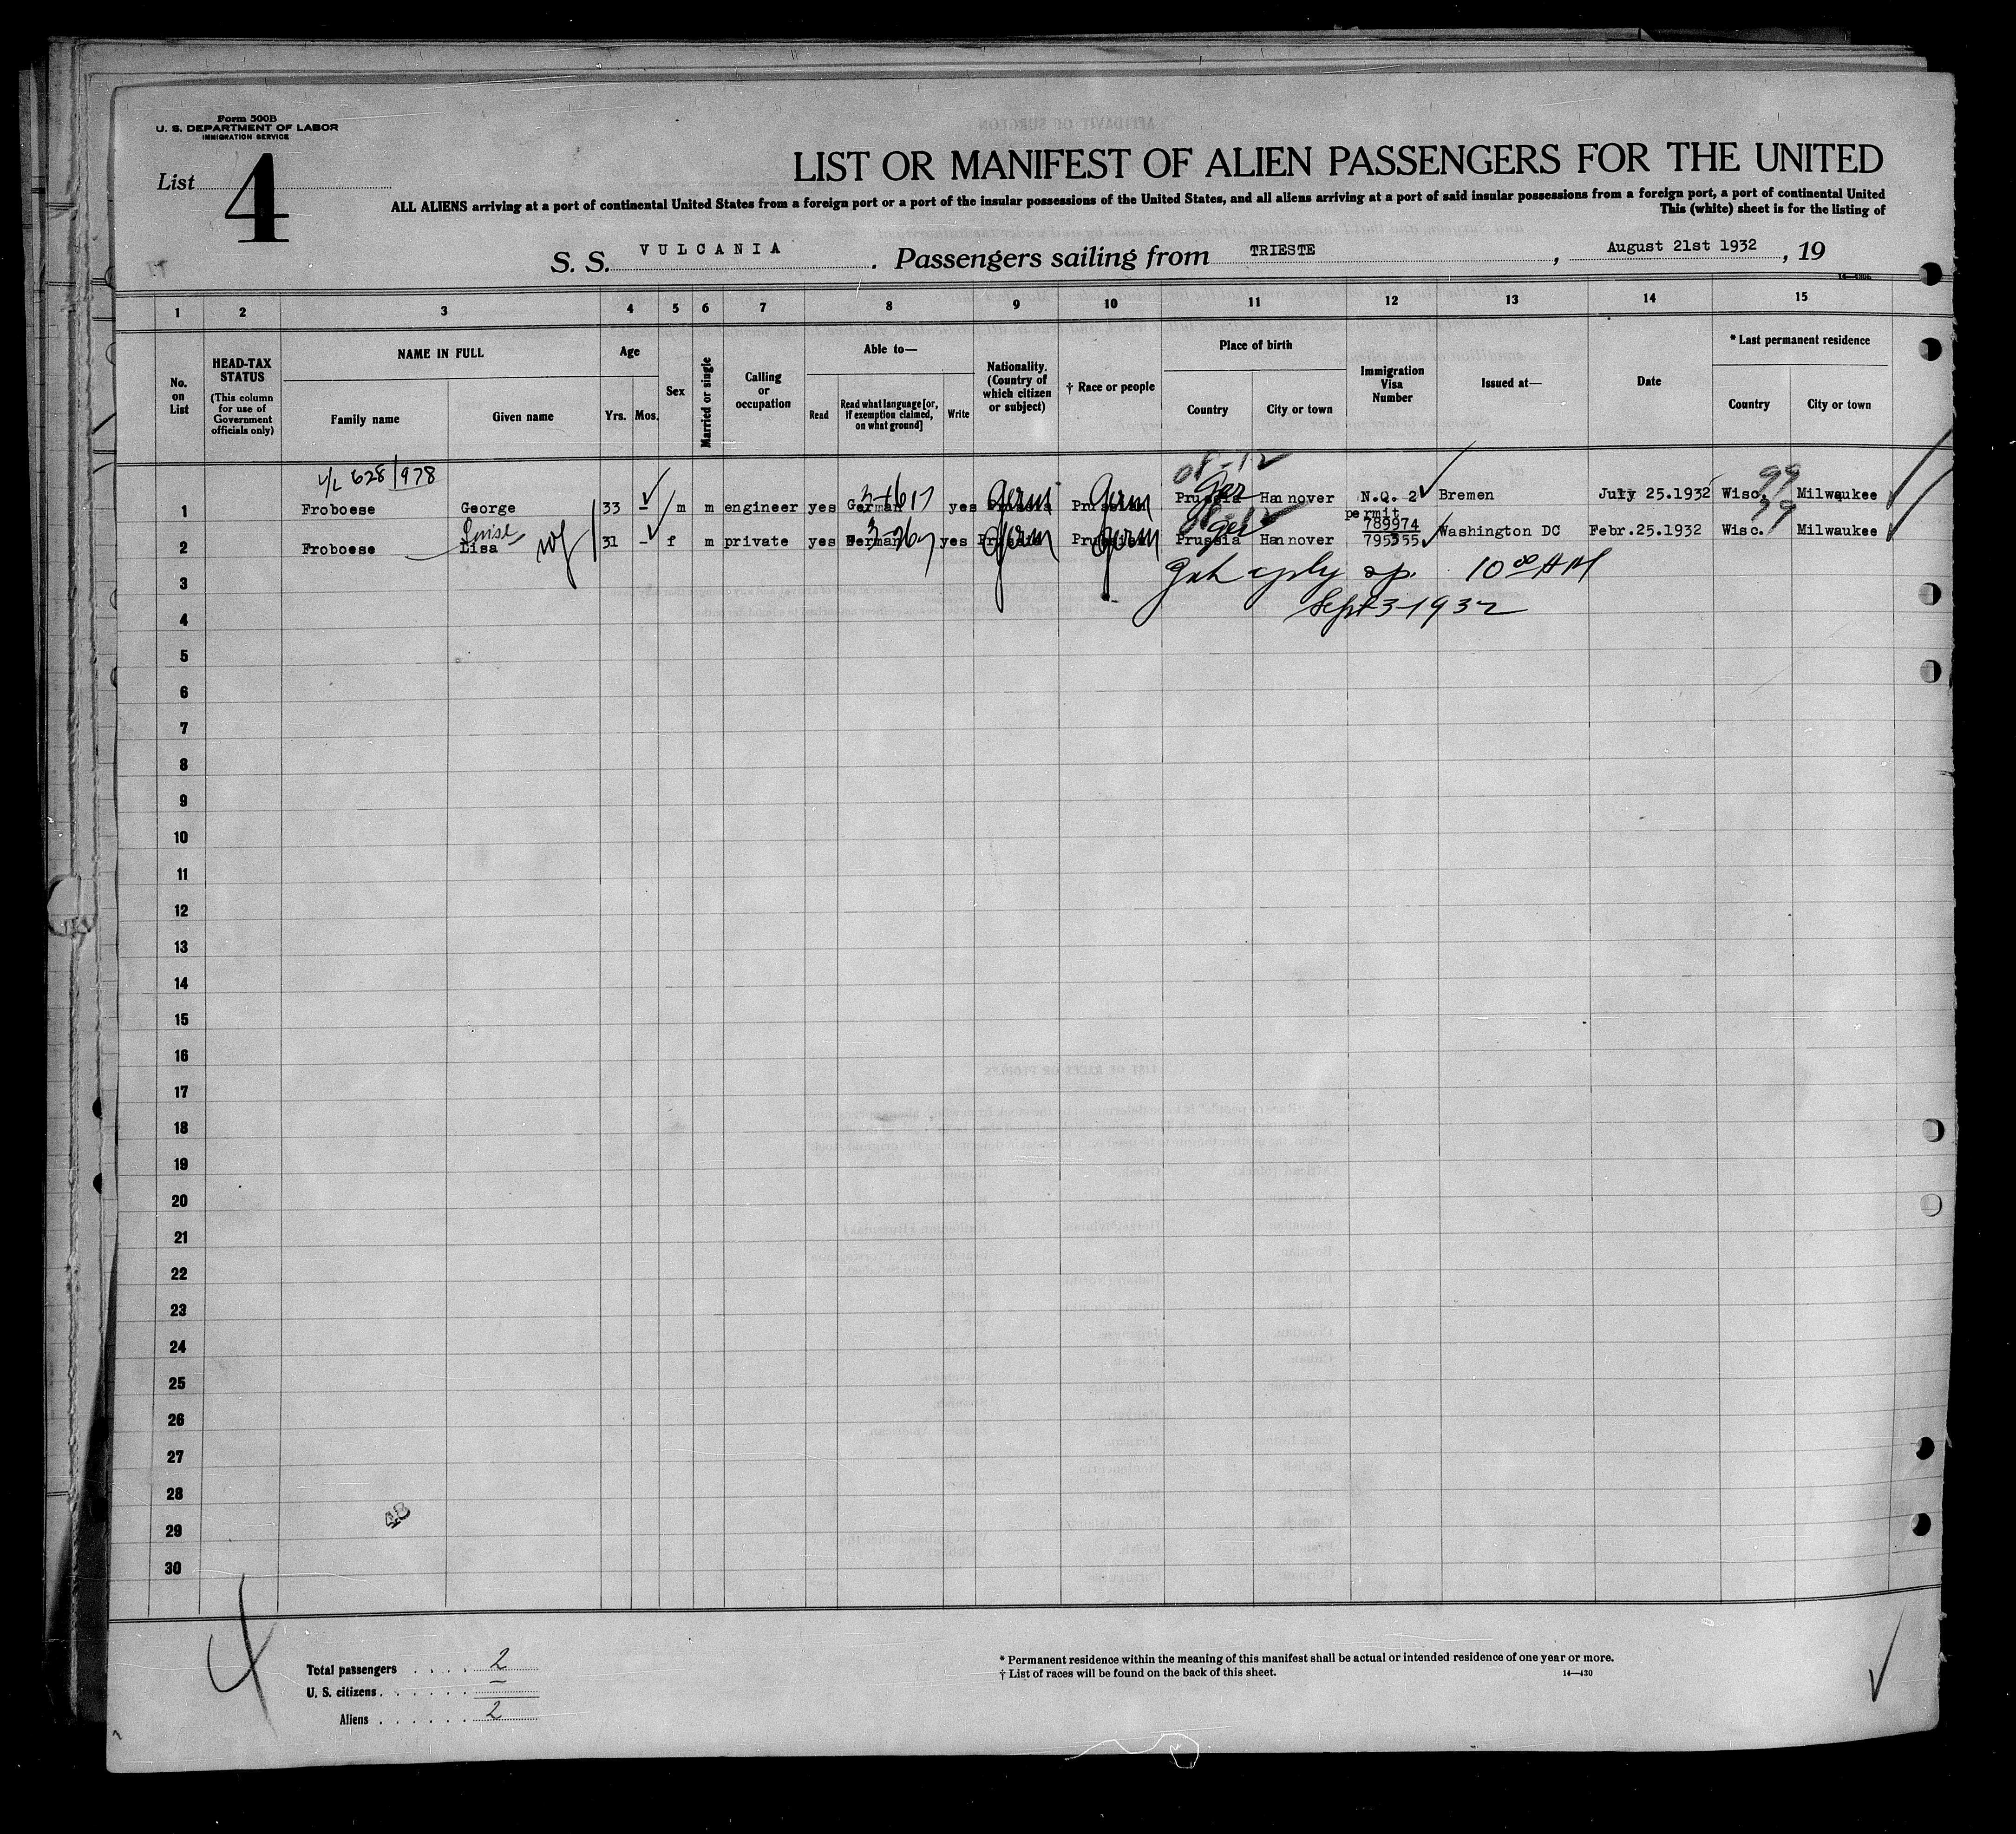 Form 500B
U. S. DEPARTMENT OF LABOR
IMMIGRATION SERVICE
List 4
LIST OR MANIFEST OF ALIEN PASSENGERS FOR THE UNITED
ALL ALIENS arriving at a port of continental United States from a foreign port or a port of the insular possessions of the United States, and all aliens arriving at a port of said insular possessions from a foreign port, a port of continental United
This (white) sheet is for the listing of
S. S. VULCANIA. Passengers sailing from TRIESTE, August 21st 1932, 19
1 2 3 4 5 6 7 8 9 10 11 12 13 14 15
No. on List
HEAD-TAX STATUS (This column for use of Government officials only)
NAME IN FULL
Family name Given name
Age
Yrs. Mos.
Sex
Married or single
Calling or occupation
Able to—
Read Read what language [or, if exemption claimed, on what ground] Write
Nationality. (Country of which citizen or subject)
† Race or people
Place of birth
Country City or town
Immigration Visa Number
Issued at—
Date
* Last permanent residence
Country City or town
628/978
1 Froboese George 33 – m m engineer yes German yes Germ Germ Prussia Ger Hannover N.Q. 2 Bremen July 25.1932 Wisc. Milwaukee
permit
789974
2 Froboese Lisa Luise wf 31 – f m private yes German yes Germ Germ Prussia Ger Hannover 795355 Washington DC Febr.25.1932 Wisc. Milwaukee
3
10 00 AM
4
Sept 3-1932
5
6
7
8
9
10
11
12
13
14
15
16
17
18
19
20
21
22
23
24
25
26
27
28
29
30
48
4
Total passengers . . . . 2
U. S. citizens . . . . . . –
Aliens . . . . . . 2
* Permanent residence within the meaning of this manifest shall be actual or intended residence of one year or more.
† List of races will be found on the back of this sheet.
14—430